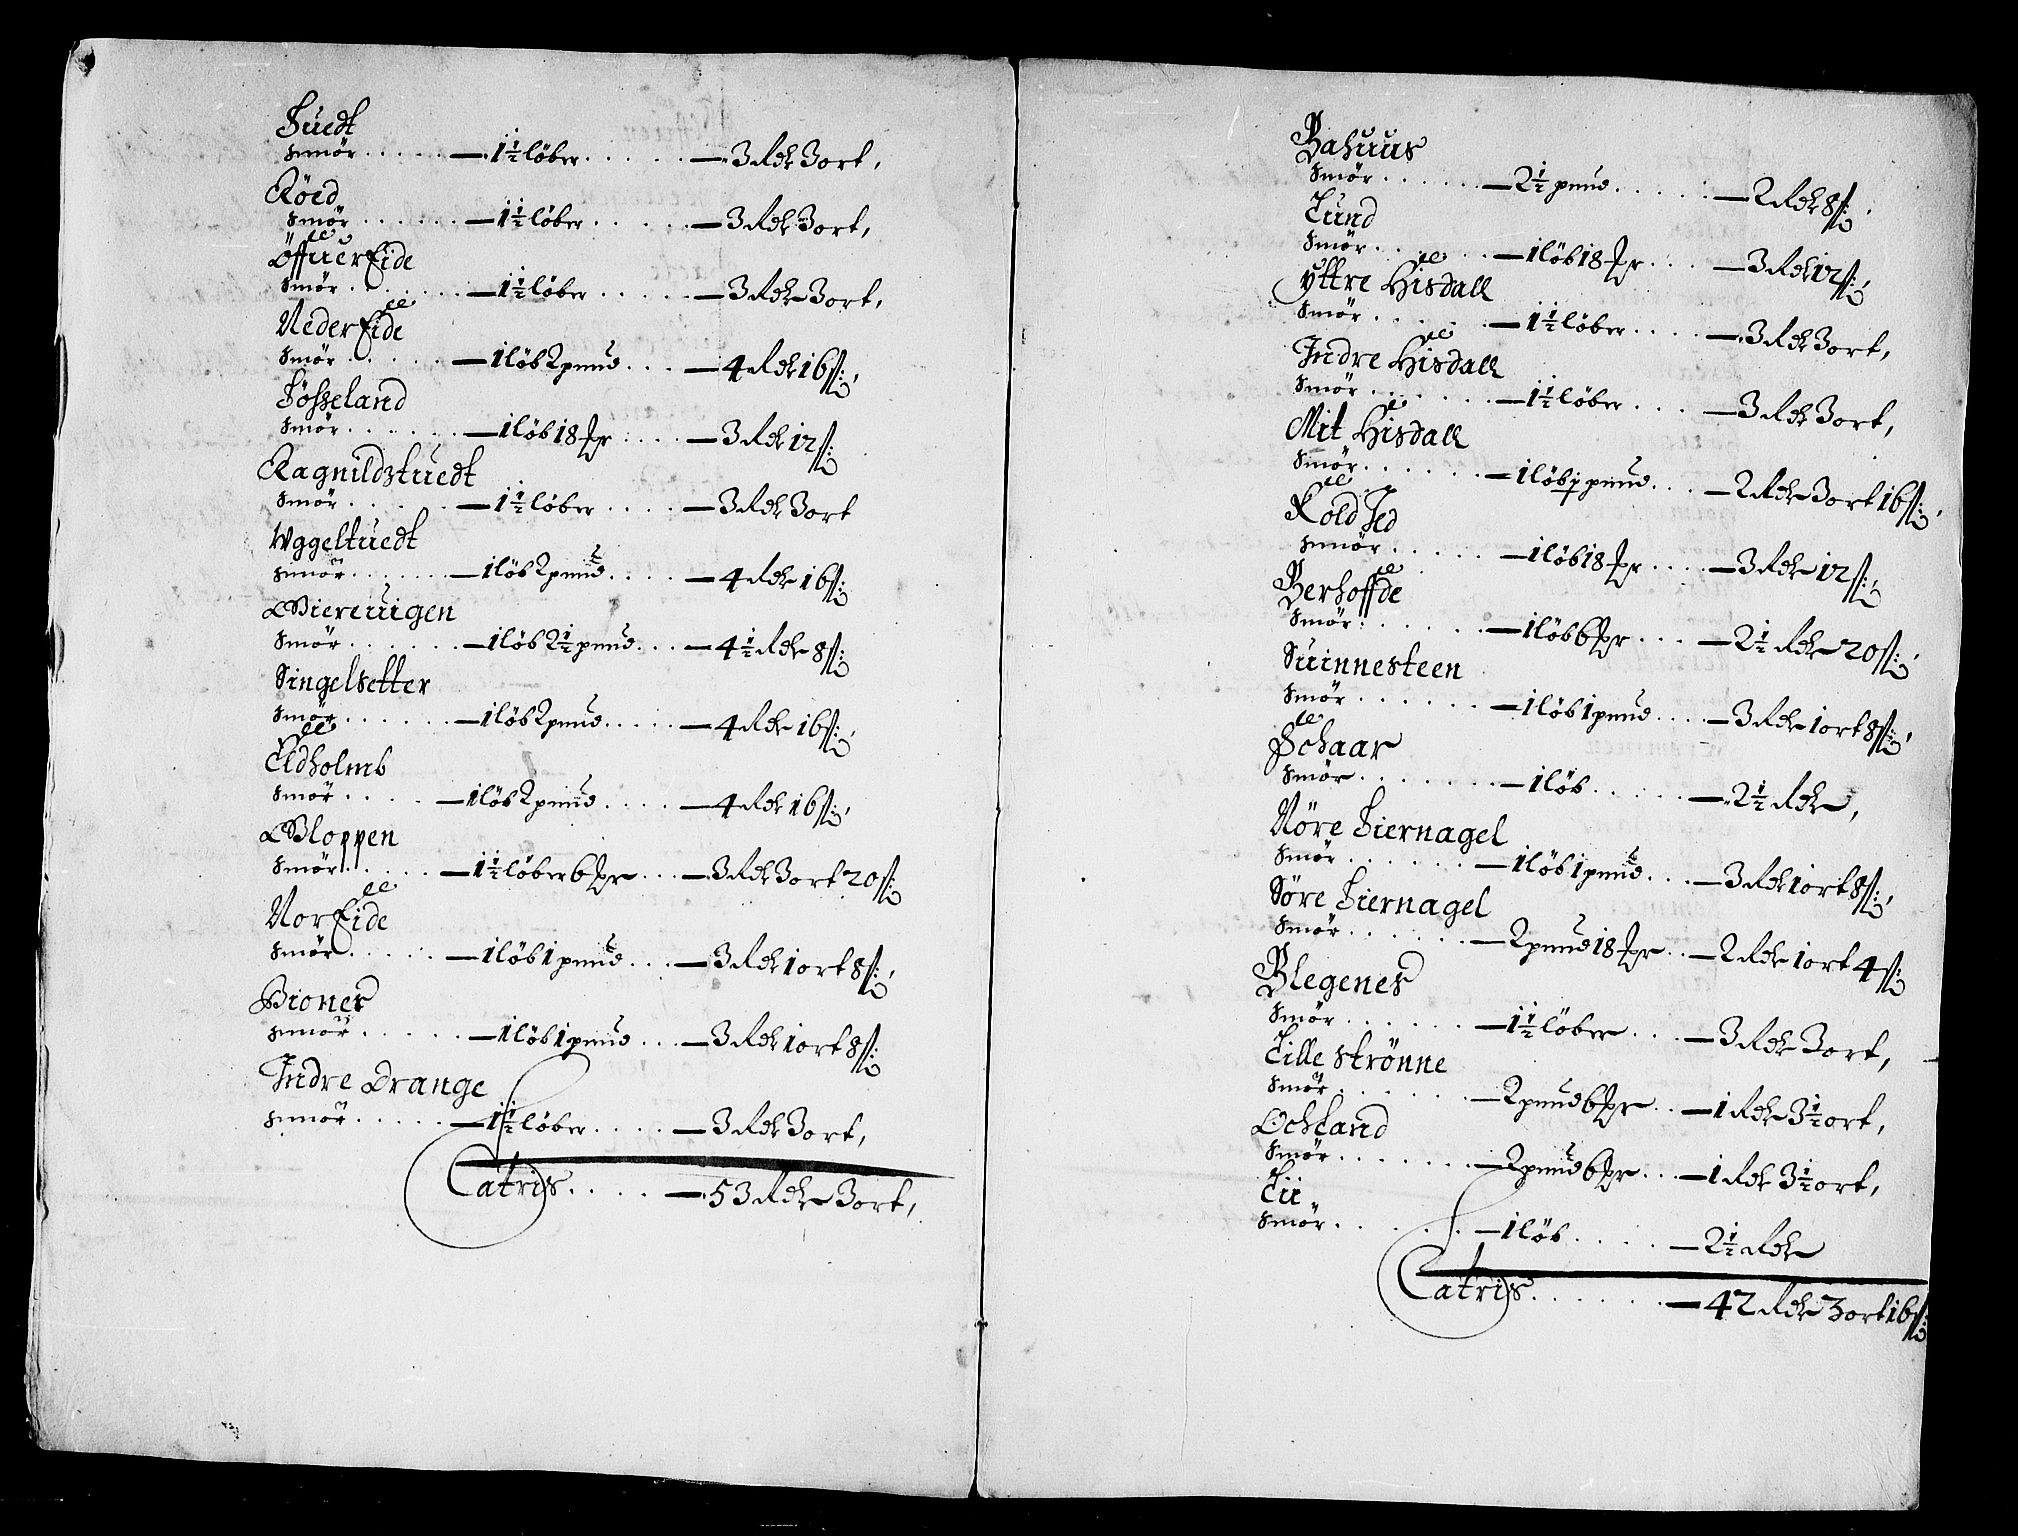 Tuedt
Smör ..... — 1½ löber ..... — 3 Rdr 3 ort,
Röed
Smör ..... — 1½ löber ..... — 3 Rdr 3 ort,
Öffuer Eide
Smör ..... — 1½ löber ..... — 3 Rdr 3 ort,
Neder Eide
Smör ..... — 1 löb 2 pund .... — 4 Rdr 16 ß,
Tösseland
Smör ..... — 1 löb 18 ... — 3 Rdr 12 ß
Ragnildstuedt
Smör ..... — 1½ löber .... — 3 Rdr 3 ort
Uggeltuedt
Smör ..... — 1 löb 2 pund .... — 4 Rdr 16 ß
Biereuigen
Smör ..... — 1 löb 2½ pund ... — 4½ Rdr 8 ß
Singelsetter
Smör ..... — 1 löb 2 pund ..... — 4 Rdr 16 ß,
Eldholmb
Smör .... — 1 löb 2 pund .... — 4 Rdr 16 ß,
Gloppen
Smör ..... — 1½ löber 6 ... — 3 Rdr 3 ort 20 ß
Nor Eide
Smör ..... — 1 löb 1 pund ... — 3 Rdr 1 ort 8 ß,
Biones
Smör ..... — 1 löb 1 pund ... — 3 Rdr 1 ort 8 ß
Indre Drange
Smör ..... — 1½ löber .... — 3 Rdr 3 ort,
Latris ..... — 53 Rdr 3 ort,
Bahuus
Smör ...... — 2½ pund ..... — 2 Rdr 8 ß,
Lund
Smör ...... — 1 löb 18 .... — 3 Rdr 12 ß,
Yttre Hisdall
Smör ..... — 1½ löber .... — 3 Rdr 3 ort,
Indre Hisdall
Smör ...... — 1½ löber ... — 3 Rdr 3 ort,
Mit Hisdall
Smör ...... — 1 löb ½ pund ... — 2 Rdr 3 ort 16 ß,
Smör ..... — 1 löb 18 .... — 3 Rdr 12 ß,
Berhoffde
Smör ...... — 1 löb 6 ... — 2½ Rdr 20 ß,
Suinnesteen
Smör ...... — 1 löb 1 pund .... — 3 Rdr 1 ort 8 ß,
Schaar
Smör ....... — 1 löb ..... — 2½ Rdr,
Nöre Liernagel
Smör ...... — 1 löb 1 pund .... — 3 Rdr 1 ort 8 ß,
Söre Liernagel
Smör ...... — 2 pund 18 .. — 2 Rdr 1 ort 4 ß
Blegenes
Smör ...... — 1½ löber ... — 3 Rdr 3 ort,
Lille Strönne
Smör ...... — 2 pund 6 .. — 1 Rdr 3½ ort,
Ochland
Smör ...... — 2 pund 6 ... — 1 Rdr 3½ ort,
Lii
Smör ..... — 1 löb ..... — 2½ Rdr
Latris ...... — 42 Rdr 3 ort 16 ß